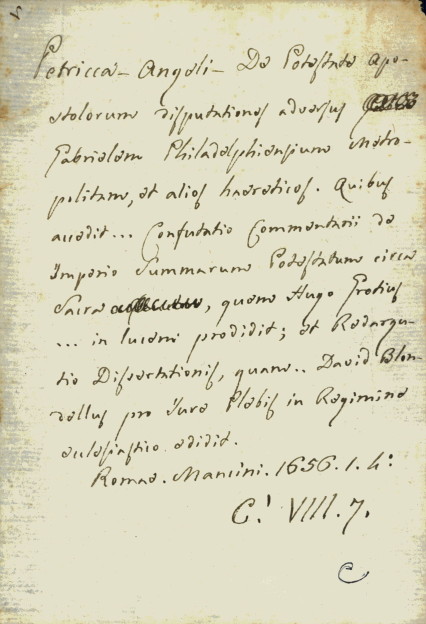 Petricca - Angeli - De Potestate Apo-
stolorum disputationes adversus
Gabrielem Philadelphiensium Metro-
politam, et alios haereticos. Quibus
accedit... Confutatio Commentarii de
Imperio Summarum Potestatum circa
Sacra, quam Hugo Grotius
... in lucem prodidit; et Redargu-
tio Dissertationis, quam.. David Blon-
dellus pro Iure Plebis in Regimine
ecclesiastico edidit.
Romae. Mancini. 1656. 1. 4:
C.! VIII. 7.
C